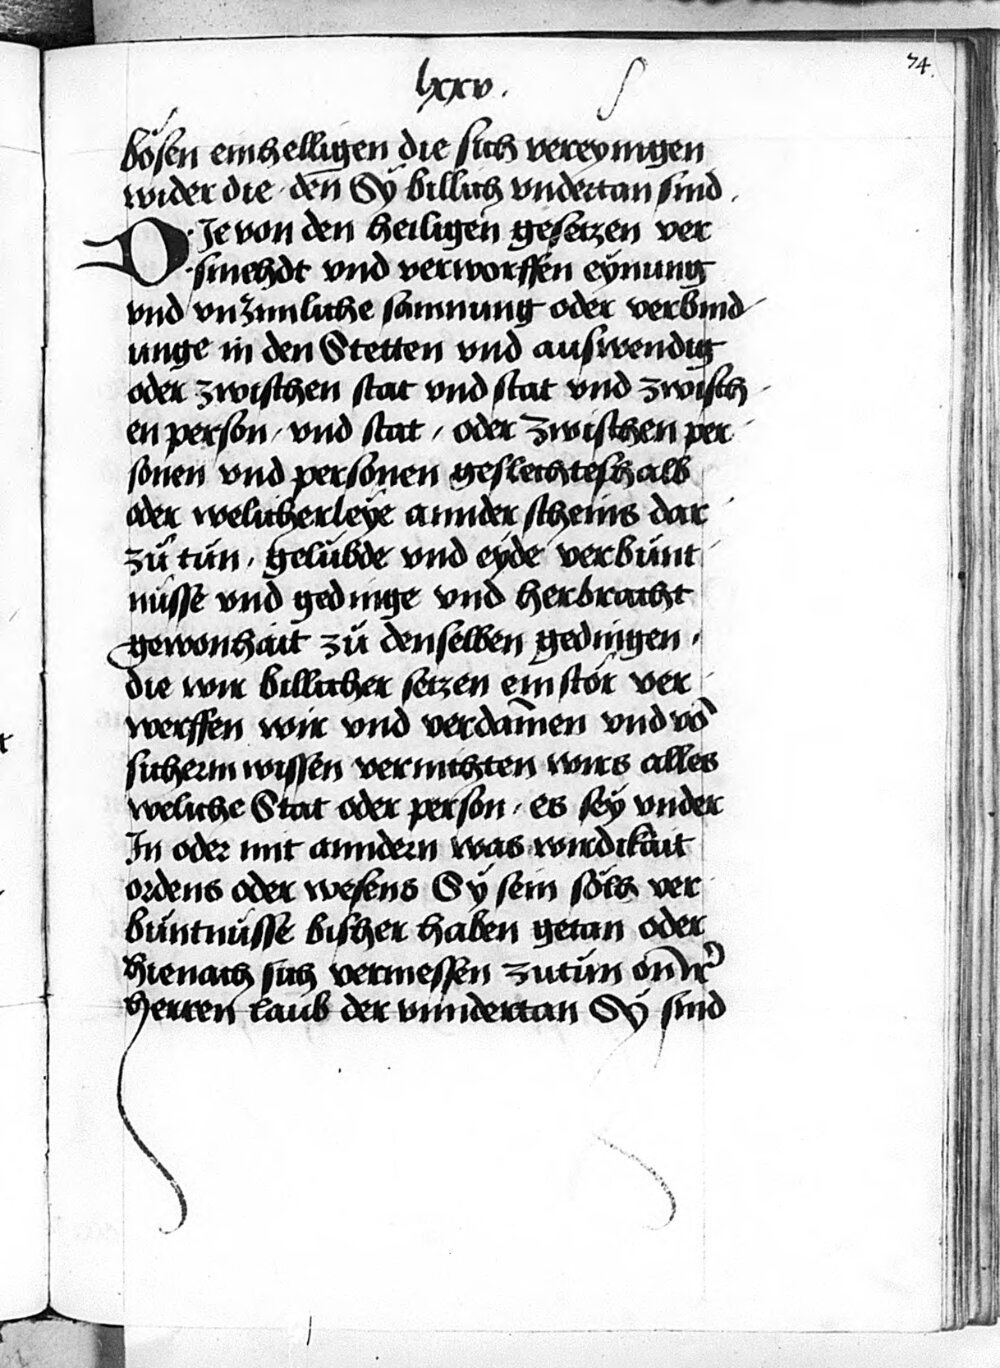 lxxv.
74.
bösen einhelligen die sich vereynigen
wider die den Sÿ billich vndertan sind.
DJe von den heiligen gesetzen ver
smehdt vnd verworffen eÿnung
vnd vnzimliche samnung oder verbind
unge in den Stetten vnd auswendig
oder zwischen stat vnd stat vnd zwisch
en person / vnd stat / oder zwischen per
sonen vnd personen geslechteshalb
oder welicherleÿe annder scheins dar
zů tůn / gelübde vnd eyde verbünt
nüsse vnd gedinge vnd herbracht
gewonhait zů denselben gedingen /
die wir billicher setzen ein stör ver
werffen wir vnd verdam̄en vnd vō
sicherm wissen vernichten wirs alles
weliche Stat oder person / es seÿ vnder
Jn oder mit anndern was wirdikait
ordens oder wesens Sÿ sein sölch ver
büntnüsse bisher haben getan oder
hienach sich vermessen zutün on Jr
herren laub der vnndertan Sÿ sind